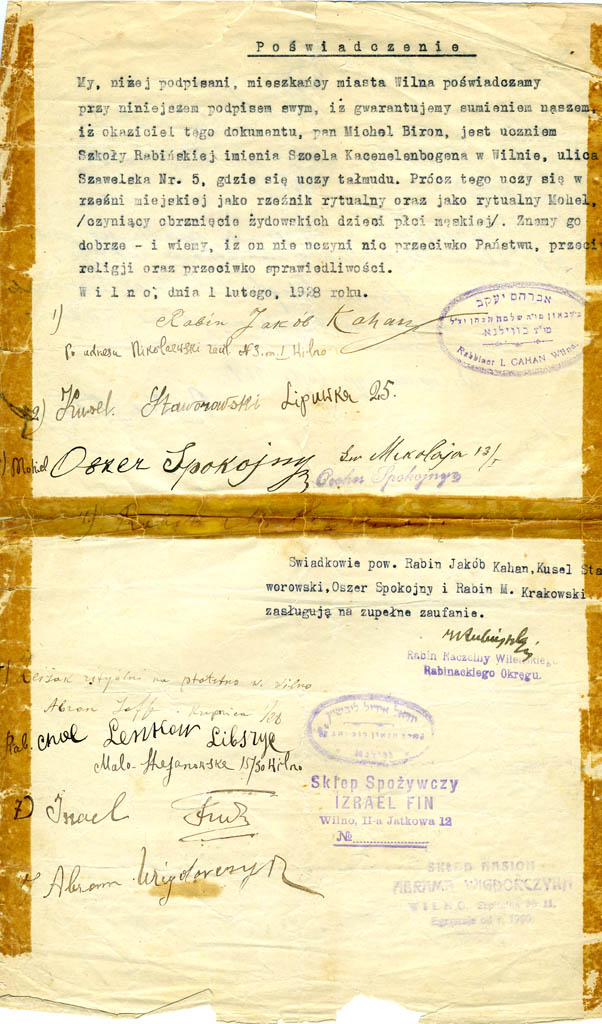 Poświadczenie
My, niżej podpisani, mieszkańcy miasta Wilna poświadczamy
przy niniejszem podpisem swym, iż gwarantujemy sumieniem naszem,
iż okaziciel tego dokumentu, pan Michel Biron, jest uczniem
Szkoły Rabińskiej imienia Szoela Kacenelenbogena w Wilnie, ulica
Szawelska Nr. 5, gdzie się uczy tałmudu. Prócz tego uczy się w
rzeźni miejskiej jako rzeźnik rytualny oraz jako rytualny Mohel,
/czyniący obrznięcie żydowskich dzieci płci męskiej/. Znamy go
dobrze - i wiemy, iż on nie uczyni nic przeciwko Państwu, przeci
religji oraz przeciwko sprawiedliwości.
Wilno, dnia 1 lutego, 1928 roku.
1) Rabin Jakób Kahan
Wilno
אברהם יעקב
Rabbiner I. CAHAN Wilno.
2) Kusel Staworowski Lipuwka 25.
Mohel Oszer Spokojny Św Mikołaja 13/
Oscher Spokojny
Swiadkowie pow. Rabin Jakób Kahan, Kusel Sta
worowski, Oszer Spokojny i Rabin M. Krakowski
zasługują na zupełne zaufanie.
Rabin Naczelny Wileńskiego
Rabinackiego Okręgu.
w. Wilno
Abram
Rab.
Wilno
Sklep Spożywczy
IZRAEL FIN
Wilno, II-a Jatkowa 12
№
7) Israel
SKŁAD NASION
ABRAMA WIGDORCZYKA
WILNO,
Abram Wigdorczyk